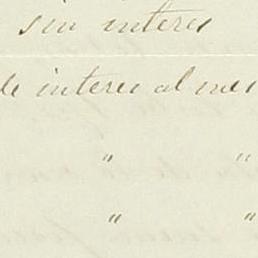 sin interes
de interes al mes
" "
" "